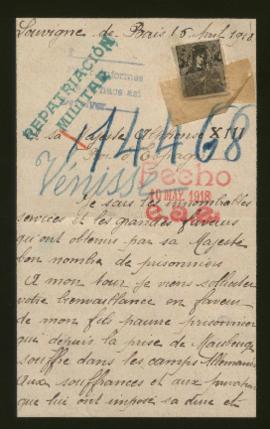 Louvigné de Bais 15 Avril 1918
REPATRIACIÓN
MILITAR
informes
hace así
114468
a Sa Majesté Alphonse XIII
Roi d'Espagne
Vénissi
Hecho
10 MAY. 1918
Je sais les innombrables
services et les grandes faveurs
qu'ont obtenus par sa Majesté
bon nombre de prisonniers
A mon tour je viens solliciter
votre bienveillance en faveur
de mon fils pauvre prisonnier
qui depuis la prise de Maubeuge
souffre dans les camps Allemands
Aux souffrances et aux privations
que lui ont imposé sa dure et